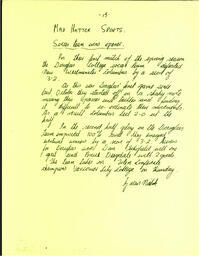 - 15 -
MAD HATTER SPORTS.
Soccer team wins opener.
In their first match of the spring season
the Douglas College soccer team defeated
New Westminster Columbus by a score of
3-2.
As this was Douglas' first game since
last October they started off on a shaky note
missing their passes and tackles and finding
it difficult to co-ordinate their movements.
As a result Columbus led 2-0 at the
half.
In the second half play on the Douglas
team improved 100% and they emerged
eventual winners by a score of "3-2".
for Douglas were Dan with one
goal and with 2 goals.
The team takes on
champions Vancouver City College on Thursday.
by